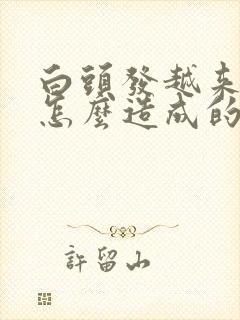 白頭發越来
怎麽造成的
許留山